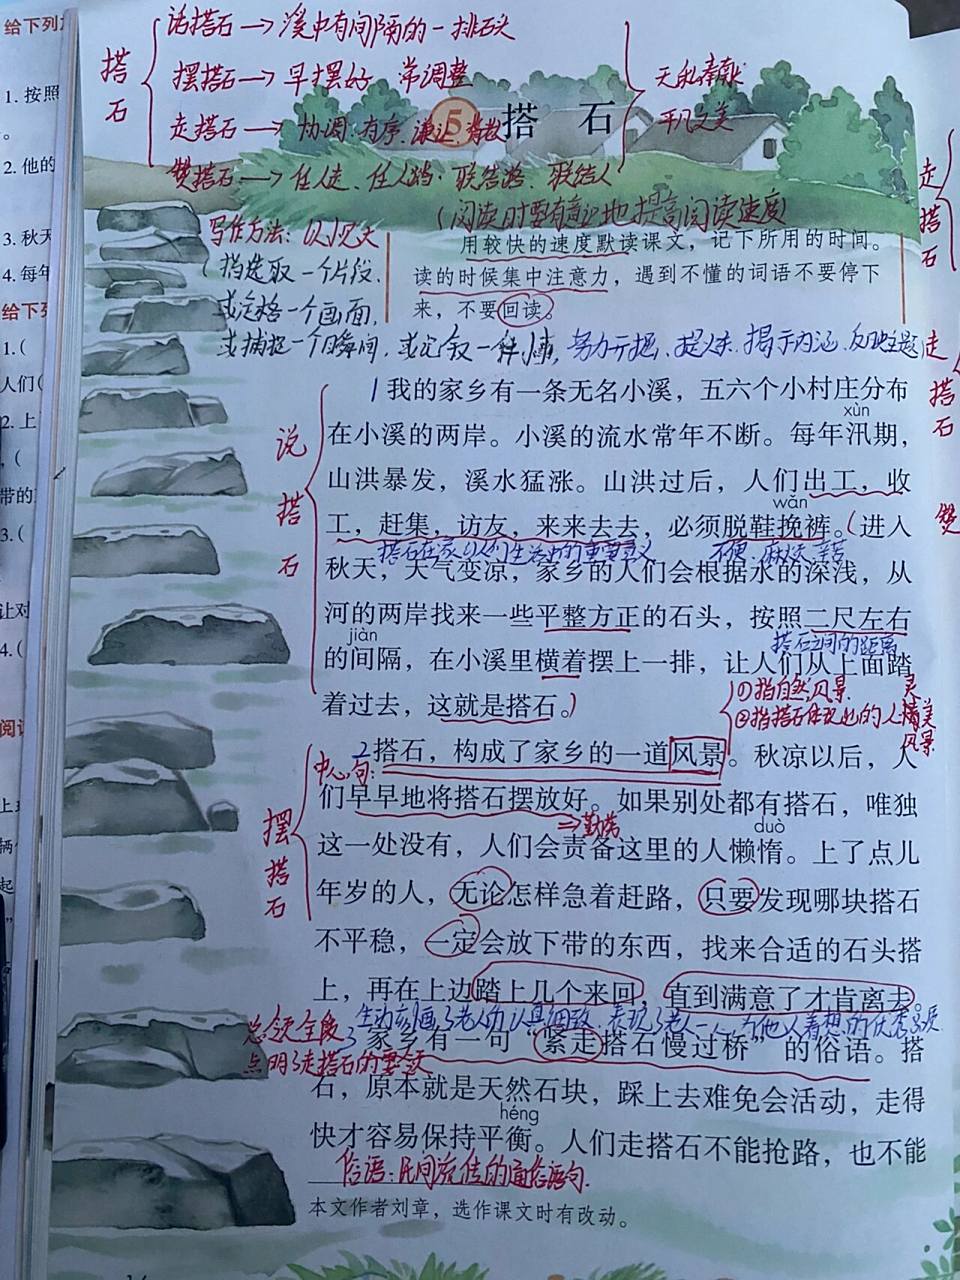 给下列
1. 按照
。
2. 他的
3. 秋天
4. 每年
给下列
1.(
人们(
2. 上
,(
带的
3.(
让对
4.(
阅读
搭石
说搭石→溪中有间隔的一排石头
摆搭石→早摆好 常调整
走搭石→协调有序、谦让、
赞搭石→任人走、任人踏·联结路、联结人
天私奉献
平凡之美
5 搭 石
(阅读时要有意识地提高阅读速度)
写作方法:以小见大
(指选取一个片段,
或定格一个画面,
或捕捉一个瞬间,或记叙一件小事,努力开掘、提炼、揭示内涵、反映主题
用较快的速度默读课文,记下所用的时间。
读的时候集中注意力,遇到不懂的词语不要停下
来,不要回读。
走搭石
走搭石
赞
说搭石
1我的家乡有一条无名小溪,五六个小村庄分布
xùn
在小溪的两岸。小溪的流水常年不断。每年汛期,
山洪暴发,溪水猛涨。山洪过后,人们出工,收
wǎn
工,赶集,访友,来来去去,必须脱鞋挽裤。(进入
搭石在家乡人们生活中的重要意义 不便、麻烦、
秋天,天气变凉,家乡的人们会根据水的深浅,从
河的两岸找来一些平整方正的石头,按照二尺左右
jiàn
搭石之间的距离
的间隔,在小溪里横着摆上一排,让人们从上面踏
着过去,这就是搭石。)
①指自然风景
②指搭石体现出的人情美
风景
摆搭石
中心句:
2搭石,构成了家乡的一道风景。秋凉以后,人
们早早地将搭石摆放好。如果别处都有搭石,唯独
⇒勤劳
duò
这一处没有,人们会责备这里的人懒惰。上了点儿
年岁的人,无论怎样急着赶路,只要发现哪块搭石
不平稳,一定会放下带的东西,找来合适的石头搭
上,再在上边踏上几个来回,直到满意了才肯离去。
生动刻画了老人的认真细致,表现了老人一心为他人着想的优秀品质
总领全段
点明了走搭石的要领
3家乡有一句“紧走搭石慢过桥”的俗语。搭
石,原本就是天然石块,踩上去难免会活动,走得
héng
快才容易保持平衡。人们走搭石不能抢路,也不能
俗语:民间流传的通俗语句.
本文作者刘章,选作课文时有改动。